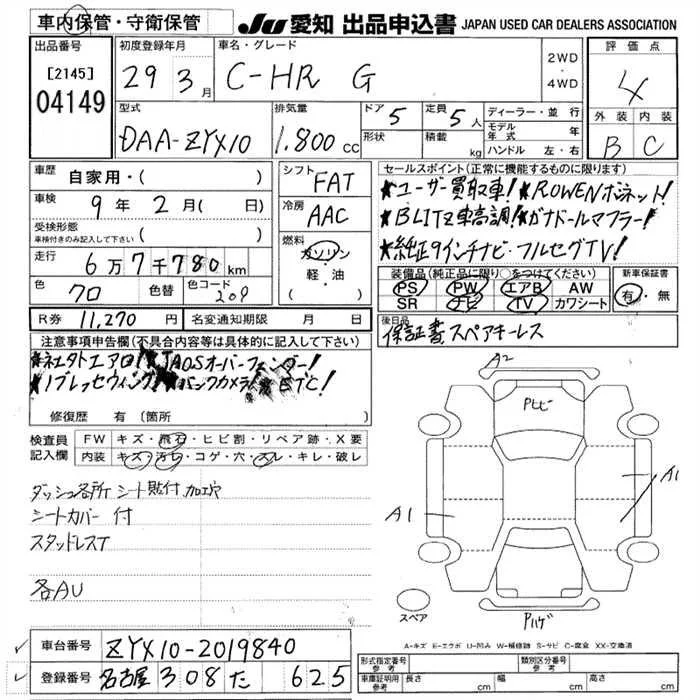 車内保管・守衛保管
JU 愛知 出品申込書 JAPAN USED CAR DEALERS ASSOCIATION
出品番号 初度登録年月 車名・グレード 2WD・4WD 評価点
[2145]
04149
29 3月 C-HR G 4
型式 排気量 ドア 5 定員 5人 ディーラー・並行 外装 内装
DAA-ZYX10 1.800 cc 形状 積載 kg モデル年式 年 B C
ハンドル 左・右
車歴 自家用・( ) シフト FAT セールスポイント(正常に機能するものに限ります)
車検 9年 2月( 日) 冷房 AAC ★ユーザー買取車! ★ROWENボネット!
受検形態 ( ) ★BLITZ車高調! ★ガナドールマフラー!
車検付きのみ記入して下さい
燃料 ガソリン・軽・油 ★純正9インチナビ・フルセグTV!
走行 6万7千780km
装備品(純正品に限り○をつけてください) 新車保証書
色 クロ 色替 色コード 209 PS PW エアB AW 有・無
SR ナビ TV カワシート
R券 11,270 円 名変通知期限 月 日 後日品
保証書 スペアキーレス
注意事項申告欄(不具合内容等は具体的に記入して下さい)
オーバーフェンダー!
ETC!
修復歴 有 (箇所
検査員記入欄 FW キズ・飛石・ヒビ割・リペア跡・X要
内装 キズ・汚レ・コゲ・穴・スレ・キレ・破レ
ダッシュ各所 シート貼付 加工穴
シートカバー 付
スタッドレスT
各AU
A2
Pトビ
A1
A1
Pハゲ
スペア
A-キズ E-エクボ U-凹み W-補修跡 S-サビ C-腐食 XX-交換済
車台番号 ZYX10-2019840
登録番号 名古屋 308 た 625
形式指定番号 参考 類別区分番号 参考
車庫証明用 参考 長さ cm 幅 cm 高さ cm